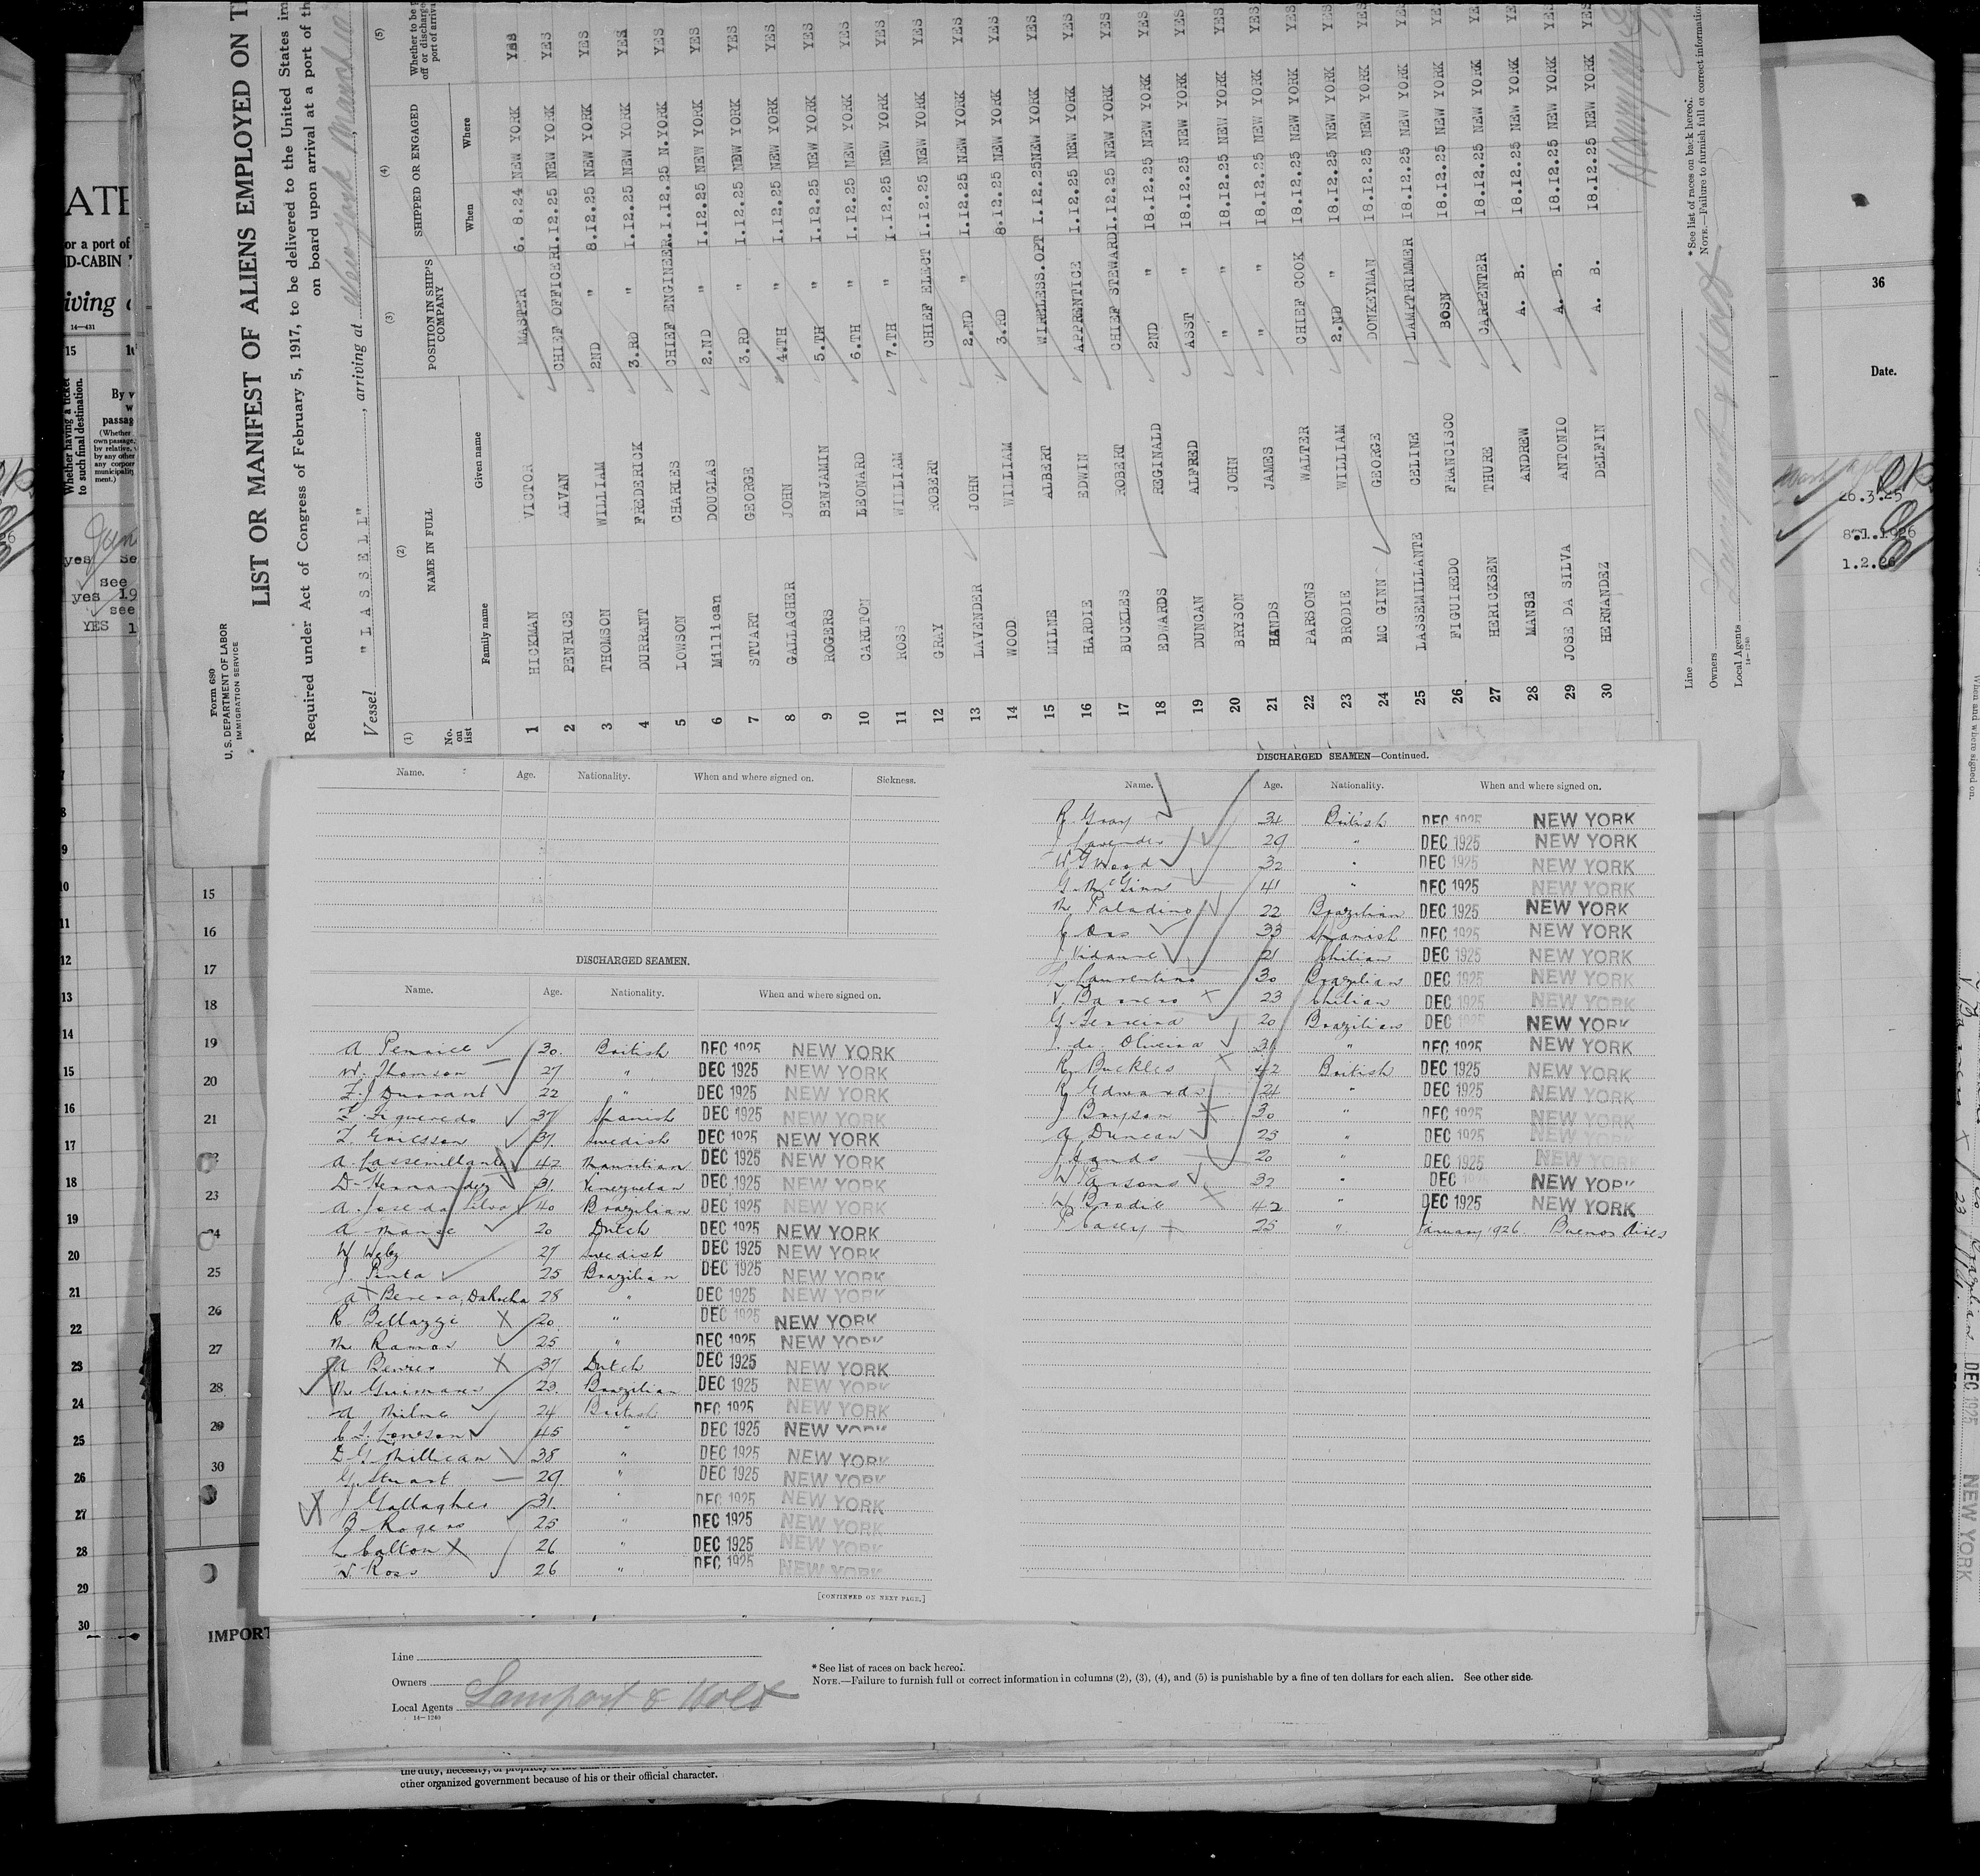 Form 680
U. S. DEPARTMENT OF LABOR
IMMIGRATION SERVICE
LIST OR MANIFEST OF ALIENS EMPLOYED ON
Required under Act of Congress of February 5, 1917, to be delivered to the United States
on board upon arrival at a port of
Vessel "LASSELL", arriving at New York March
(1) (2) (3) (4) (5)
No. on list NAME IN FULL POSITION IN SHIP'S COMPANY SHIPPED OR ENGAGED Whether to be
off or discharged
port of arrival
Family name Given name When Where
1 HICKMAN VICTOR MASTER 6. 8.24 NEW YORK YES
2 PENRICE ALVAN CHIEF OFFICER I.I2.25 NEW YORK YES
3 THOMSON WILLIAM 2ND " 8.I2.25 NEW YORK YES
4 DURRANT FREDERICK 3.RD " I.I2.25 NEW YORK YES
5 LOWSON CHARLES CHIEF ENGINEER. I.I2.25 N.YORK YES
6 Millican DOUGLAS 2.ND " I.I2.25 NEW YORK YES
7 STUART GEORGE 3.RD " I.I2.25 NEW YORK YES
8 GALLAGHER JOHN 4.TH " I.I2.25 NEW YORK YES
9 ROGERS BENJAMIN 5.TH " I.I2.25 NEW YORK YES
10 CARLTON LEONARD 6.TH " I.I2.25 NEW YORK YES
11 ROSS WILLIAM 7.TH " I.I2.25 NEW YORK YES
12 GRAY ROBERT CHIEF ELECT I.I2.25 NEW YORK YES
13 LAVENDER JOHN 2.ND " I.I2.25 NEW YORK YES
14 WOOD WILLIAM 3.RD " 8.I2.25 NEW YORK YES
15 MILNE ALBERT WIRELESS.OPT I.I2.25 NEW YORK YES
16 HARDIE EDWIN APPRENTICE I.I2.25 NEW YORK YES
17 BUCKLES ROBERT CHIEF STEWARD I.I2.25 NEW YORK YES
18 EDWARDS REGINALD 2ND " I8.I2.25 NEW YORK YES
19 DUNCAN ALFRED ASST " I8.I2.25 NEW YORK YES
20 BRYSON JOHN " " I8.I2.25 NEW YORK YES
21 HANDS JAMES " " I8.I2.25 NEW YORK YES
22 PARSONS WALTER CHIEF COOK I8.I2.25 NEW YORK YES
23 BRODIE WILLIAM 2.ND " I8.I2.25 NEW YORK YES
24 MC GINN GEORGE DONKEYMAN I8.I2.25 NEW YORK YES
25 LASSEMILLANTE CELINE LAMPTRIMMER I8.I2.25 NEW YORK YES
26 FIGUIREDO FRANCISCO BOSN I8.I2.25 NEW YORK YES
27 HERICKSEN THURE CARPENTER I8.I2.25 NEW YORK YES
28 MANSE ANDREW A. B. I8.I2.25 NEW YORK YES
29 JOSE DA SILVA ANTONIO A. B. I8.I2.25 NEW YORK YES
30 HERNANDEZ DELFIN A. B. I8.I2.25 NEW YORK YES
Line
Owners
Local Agents Lamport & Holt
14—1240
*See list of races on back hereof.
NOTE.—Failure to furnish full or correct information
Name. Age. Nationality. When and where signed on. Sickness.
DISCHARGED SEAMEN.
Name. Age. Nationality. When and where signed on.
A Penrice 30. British DEC 1925 NEW YORK
W. Thomson 27 " DEC 1925 NEW YORK
F. J Durrant 22 " DEC 1925 NEW YORK
F. Figueredo 37 Spanish DEC 1925 NEW YORK
T. Ericsson 37. Swedish DEC 1925 NEW YORK
A. Lassemillante 42 Mauritian DEC 1925 NEW YORK
D- Hernandez 31. Venezuelan DEC 1925 NEW YORK
A. Jose da Silva 40 Brazilian DEC 1925 NEW YORK
A Manse 20 Dutch DEC 1925 NEW YORK
W 27 Swedish DEC 1925 NEW YORK
J Pinta 25 Brazilian DEC 1925 NEW YORK
A 28 " DEC 1925 NEW YORK
R. Bellazzi 20. " DEC 1925 NEW YORK
M. Ramos 25 " DEC 1925 NEW YORK
A 37 Dutch DEC 1925 NEW YORK
M. 23. Brazilian DEC 1925 NEW YORK
A Milne 24 British DEC 1925 NEW YORK
C. Lowson 45 " DEC 1925 NEW YORK
D G Millican 38 " DEC 1925 NEW YORK
G. Stuart 29. " DEC 1925 NEW YORK
J Gallagher 31. " DEC 1925 NEW YORK
B. Rogers 25 " DEC 1925 NEW YORK
L Calton 26 " DEC 1925 NEW YORK
W. Ross 26 " DEC 1925 NEW YORK
[CONTINUED ON NEXT PAGE.]
DISCHARGED SEAMEN—Continued.
Name. Age. Nationality. When and where signed on.
R. Gray 34 British DEC 1925 NEW YORK
J Lavender 29 " DEC 1925 NEW YORK
W G Wood 32 " DEC 1925 NEW YORK
G. McGinn 41 " DEC 1925 NEW YORK
M Paladino 22 Brazilian DEC 1925 NEW YORK
33 Spanish DEC 1925 NEW YORK
J Vidaurre 21 Chilian DEC 1925 NEW YORK
Laurentino 30 Brazilian DEC 1925 NEW YORK
V. Barrero 23 Chilian DEC 1925 NEW YORK
G. Ferreira 20 Brazilian DEC 1925 NEW YORK
J. de Oliveira 31 " DEC 1925 NEW YORK
R. Buckles 42 British DEC 1925 NEW YORK
R Edwards 24 " DEC 1925 NEW YORK
J Bryson 30 " DEC 1925 NEW YORK
A Duncan 25 " DEC 1925 NEW YORK
J Hands 20 " DEC 1925 NEW YORK
W Parsons 32 " DEC 1925 NEW YORK
W Brodie 42 " DEC 1925 NEW YORK
P Casey 25 " January 1926 Buenos Aires
Line
Owners
Local Agents Lamport & Holt
14—1240
*See list of races on back hereof.
NOTE.—Failure to furnish full or correct information in columns (2), (3), (4), and (5) is punishable by a fine of ten dollars for each alien. See other side.
other organized government because of his or their official character.
36
Date.
26.3.25
8.1.1926
1.2.26